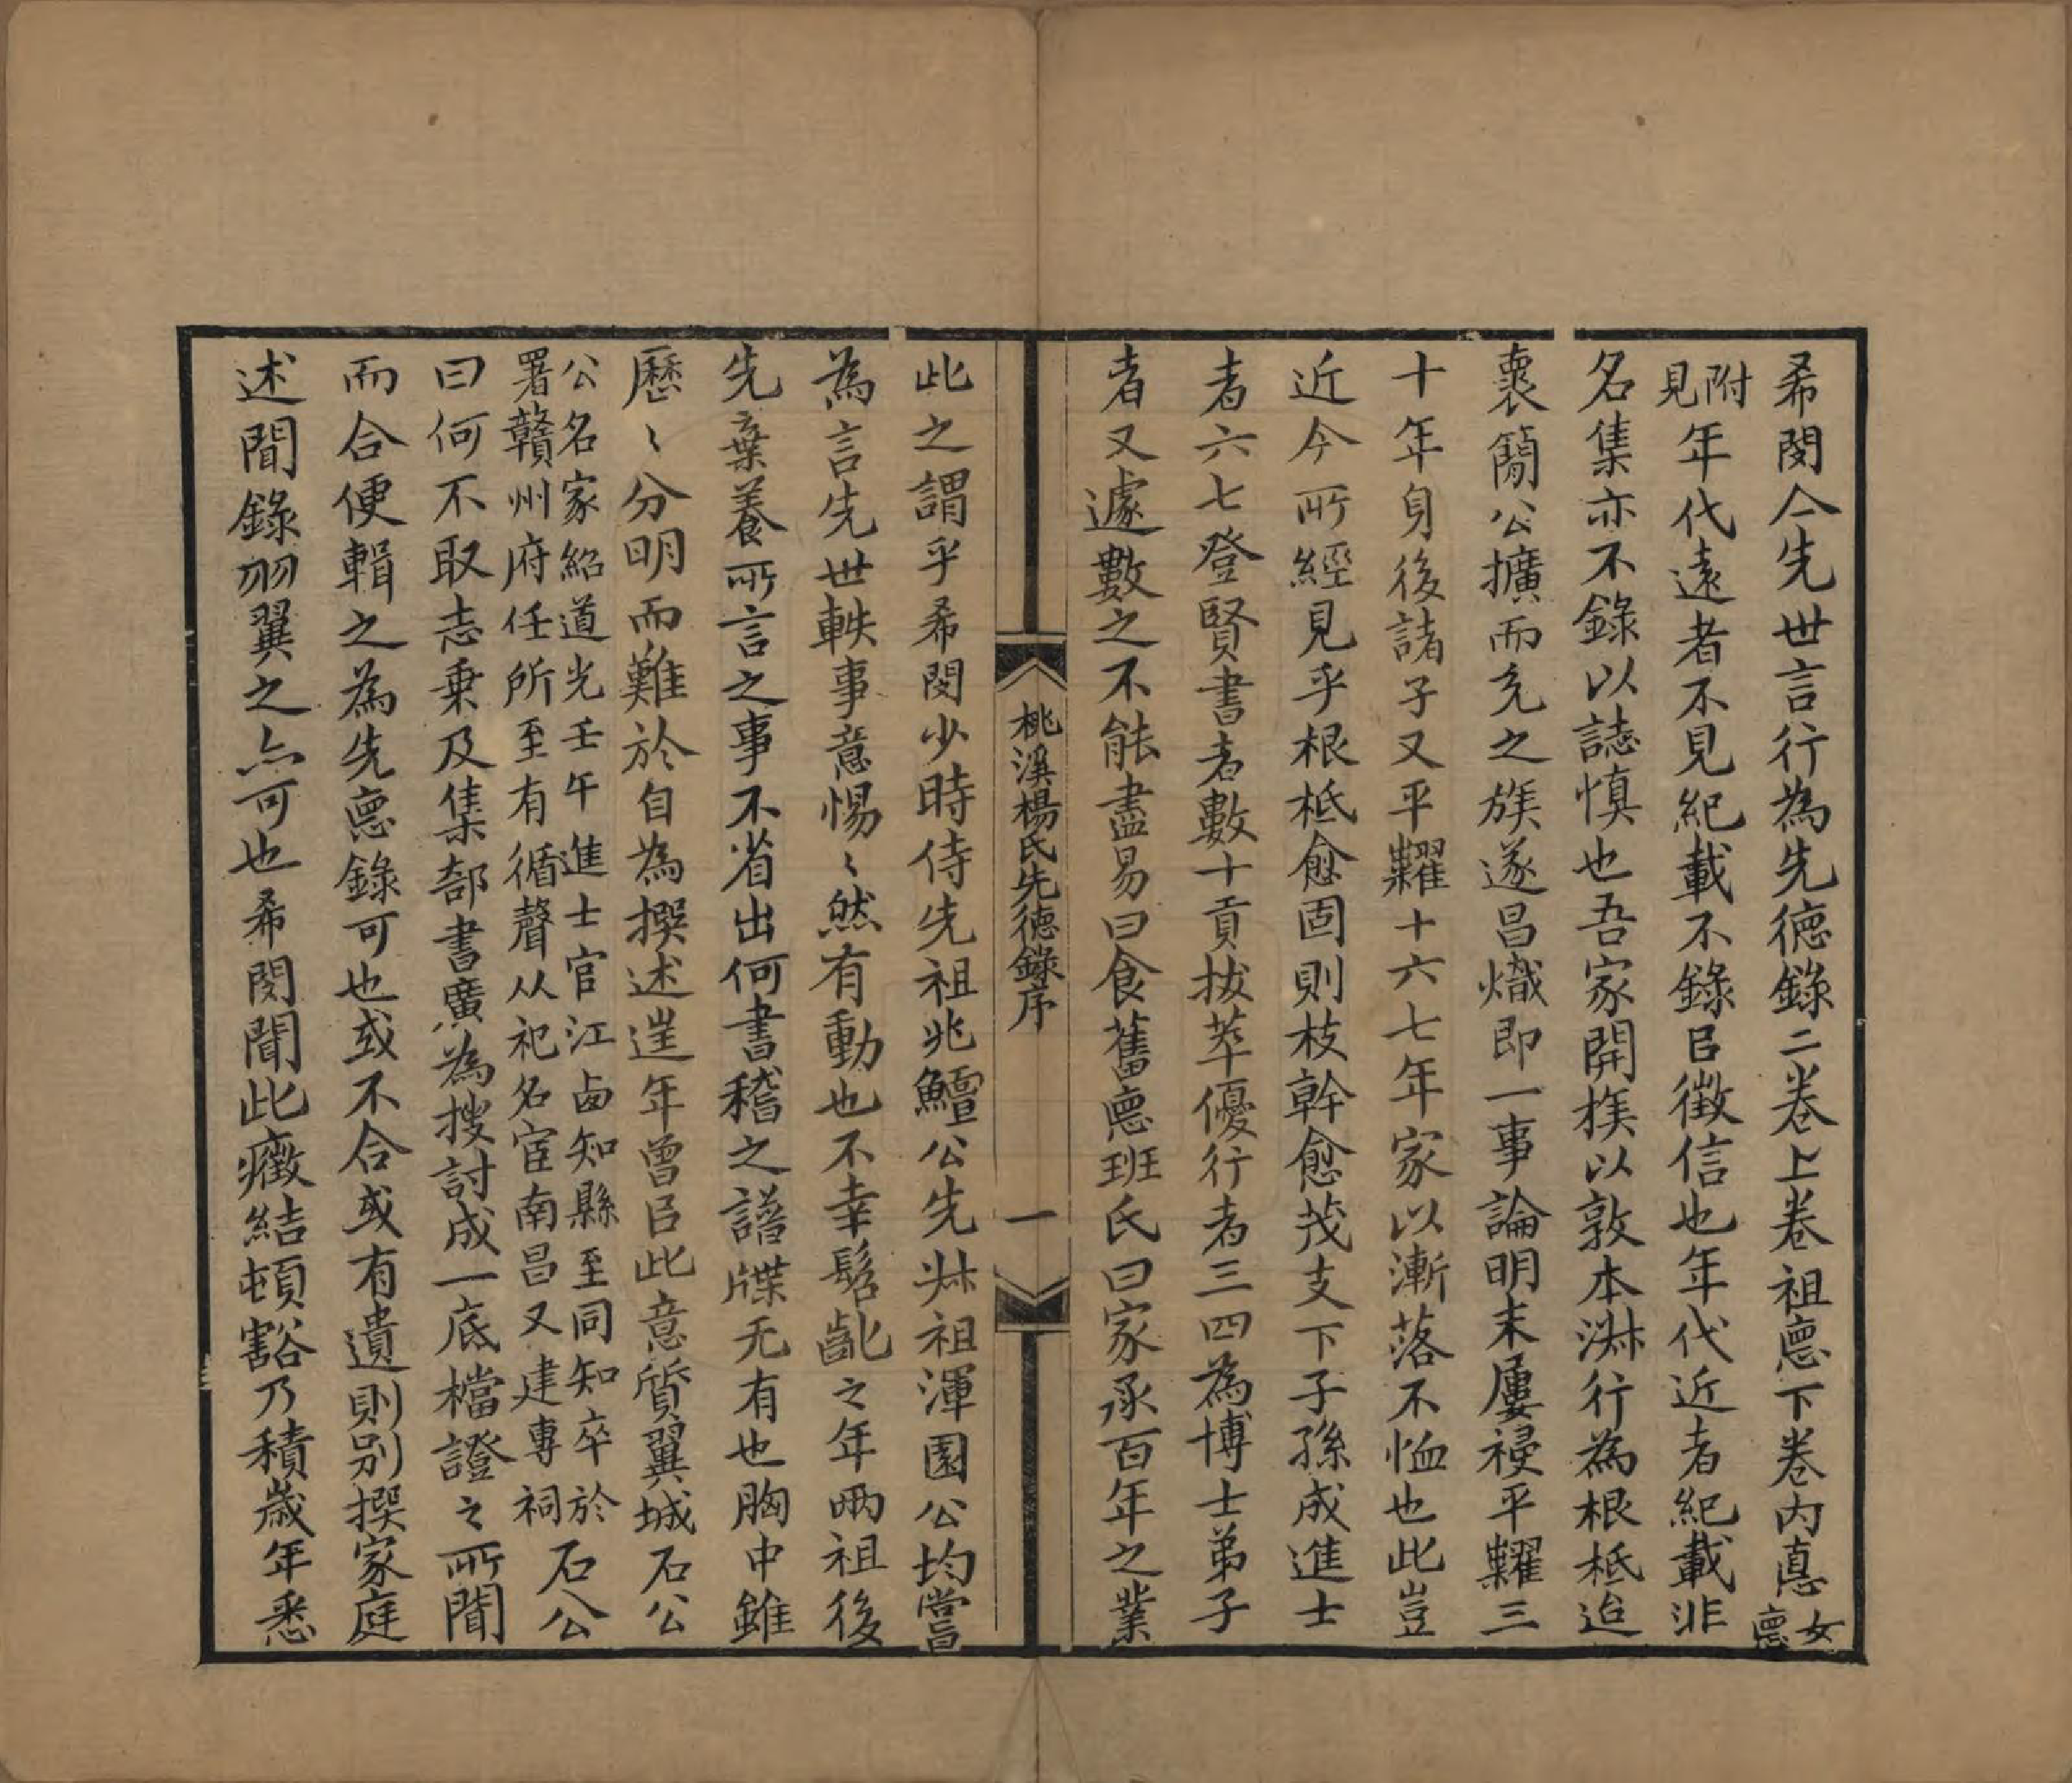 希閔亼先世言行為先徳錄二卷上卷祖悳下卷内悳女悳
附見年代遠者不見紀載不錄㠯徴信也年代近者紀載非
名集亦不錄以誌慎也吾家開族以敦本淋行為根柢迨
裛蕳公擴而充之族遂昌熾即一事論明末屢祲平糶三
十年身後諸子又平糶十六七年家以漸落不恤也此豈
近今所經見乎根柢愈固則枝幹愈茂支下子孫成進士
者六七登賢書者數十貢拔萃優行者三四為博士弟子
者又遽數之不能盡易曰食舊悳班氏曰家承百年之業
桃溪楊氏先徳錄序
一
此之謂乎希閔少時侍先祖兆鱣公先祖渾園公均嘗
為言先世軼事意惕〻然有動也不幸髫齔之年兩祖後
先棄養所言之事不省出何書稽之譜牒无有也胸中雖
歷〻分明而難於自為撰述逹年曾㠯此意質翼城石公
公名家紹道光壬午進士官江卤知縣至同知卒於
署贛州府任所至有循聲从祀名宦南昌又建專祠
石公
曰何不取志乗及集部書廣為搜討成一底檔證之所聞
而合便輯之為先悳錄可也或不合或有遺則別撰家庭
述聞錄羽翼之亦可也希閔聞此癥結頓豁乃積歲年悉